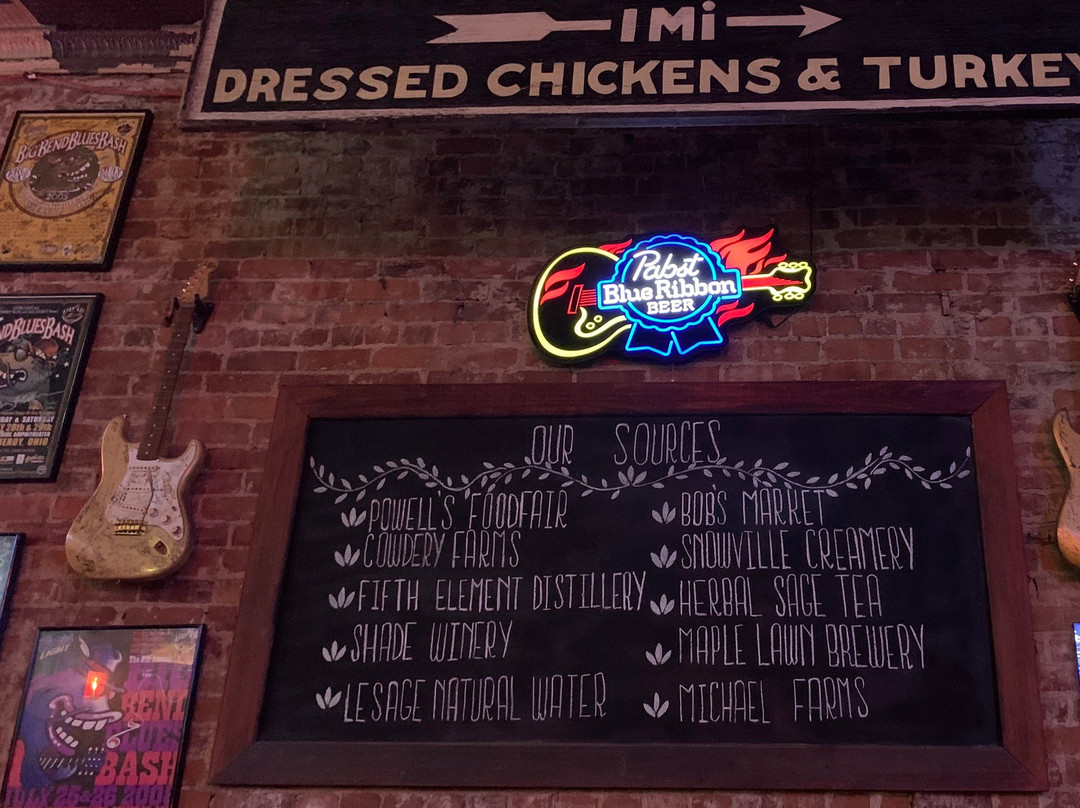 1 Mi
DRESSED CHICKENS & TURKEY
BIG BEND BLUES BASH
2005
ND BLUES BASH
& SATURDAY
28th & 29th
OHIO
Pabst
Blue Ribbon
BEER
OUR SOURCES
POWELL'S FOODFAIR
COWDERY FARMS
FIFTH ELEMENT DISTILLERY
SHADE WINERY
LESAGE NATURAL WATER
BOB'S MARKET
SNOWVILLE CREAMERY
HERBAL SAGE TEA
MAPLE LAWN BREWERY
MICHAEL FARMS
LIGHT
BEND
BLUES
BASH
JULY 25&26 2008